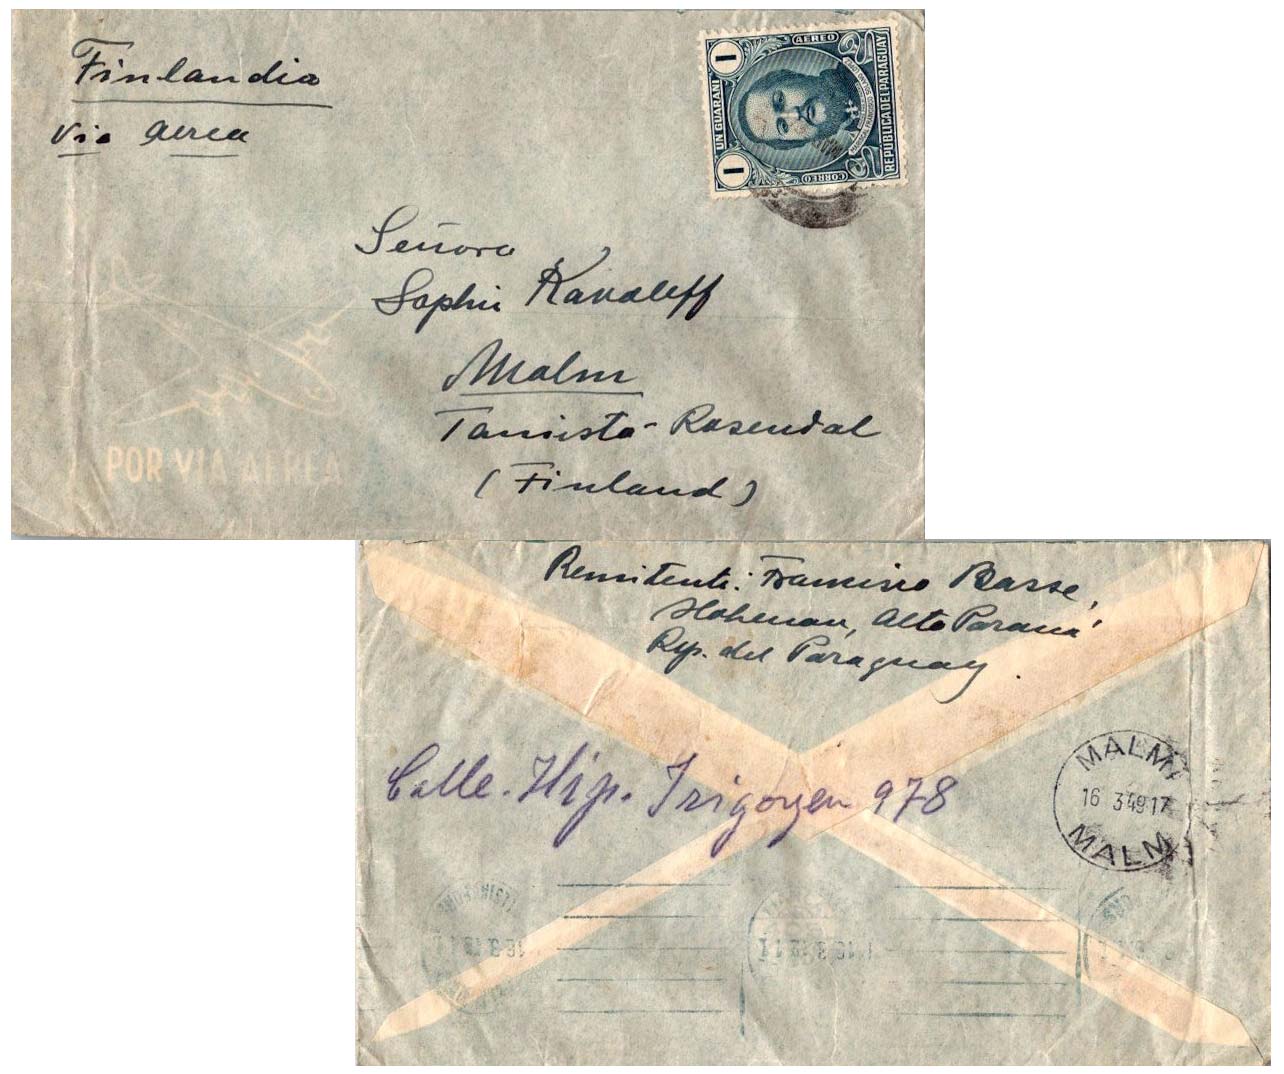 Finlandia
Via aerea
AEREO
1
1
UN GUARANI
REPUBLICA DEL PARAGUAY
CORREO
Señora
Sophie Kavaleff
Malm
Tomista-Rosendal
(Finland)
POR VIA AEREA
Remitente: Francisco Basse,
Hohenau, Alto Paraná
Rep. del Paraguay.
Calle. Hip. Irigoyen 978
MALM
16 3 49 17
MALM